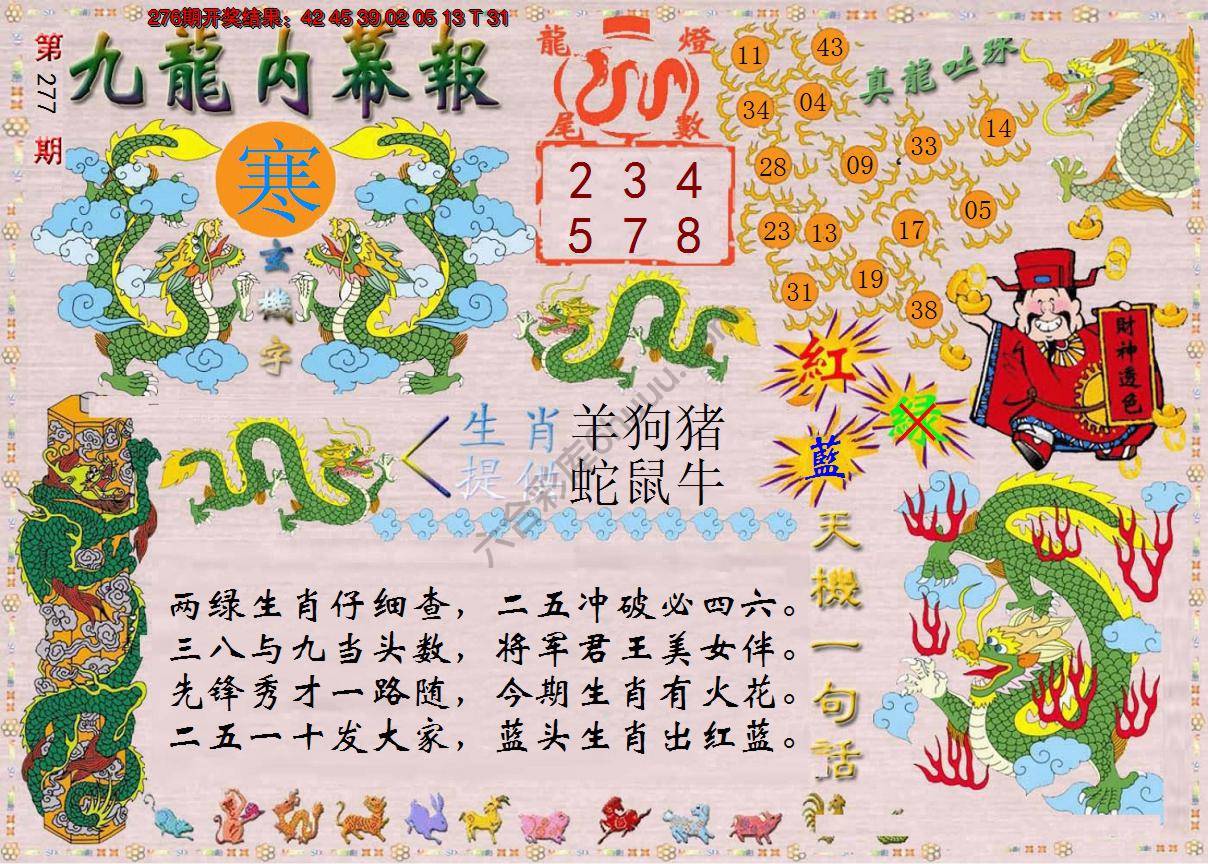 276期开奖结果：42 45 39 02 05 13 T 31
第277期
九龍内幕報
寒
玄機字
龍燈尾數
2 3 4
5 7 8
真龍吐珠
11 43
34 04
28 09 33 14
23 13 17 05
31 19 38
財神透色
紅
绿
藍
生肖提供
羊狗猪
蛇鼠牛
天機一句話
两绿生肖仔细查，二五冲破必四六。
三八与九当头数，将军君王美女伴。
先锋秀才一路随，今期生肖有火花。
二五一十发大家，蓝头生肖出红蓝。